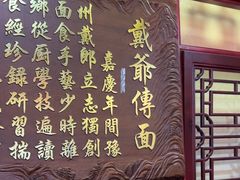 戴爺傳面
嘉慶年間豫
州戴郎立志獨創
面食手藝少時離
鄉從厨學技遍讀
食經珍錄研習揣